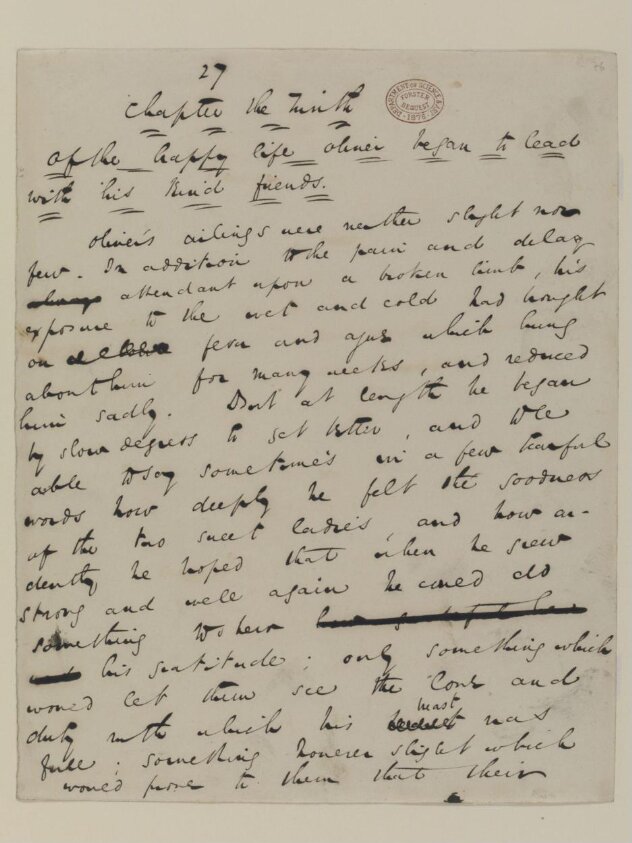 27
Chapter the Ninth
Of the happy life Oliver began to lead
with his kind friends.
DEPARTMENT OF SCIENCE & ART
FORSTER
BEQUEST
1876
Oliver's ailings were neither slight nor
few. In addition to the pain and delay
attendant upon a broken limb, his
exposure to the wet and cold had brought
on fever and ague which hung
about him for many weeks, and reduced
him sadly. But at length he began
by slow degrees to get better, and to be
able to say sometimes in a few tearful
words how deeply he felt the goodness
of the two sweet ladies, and how ar-
dently he hoped that when he grew
strong and well again he could do
something to shew
his gratitude; only something which
would let them see the love and
duty with which his breast was
full; something however slight which
would prove to them that their